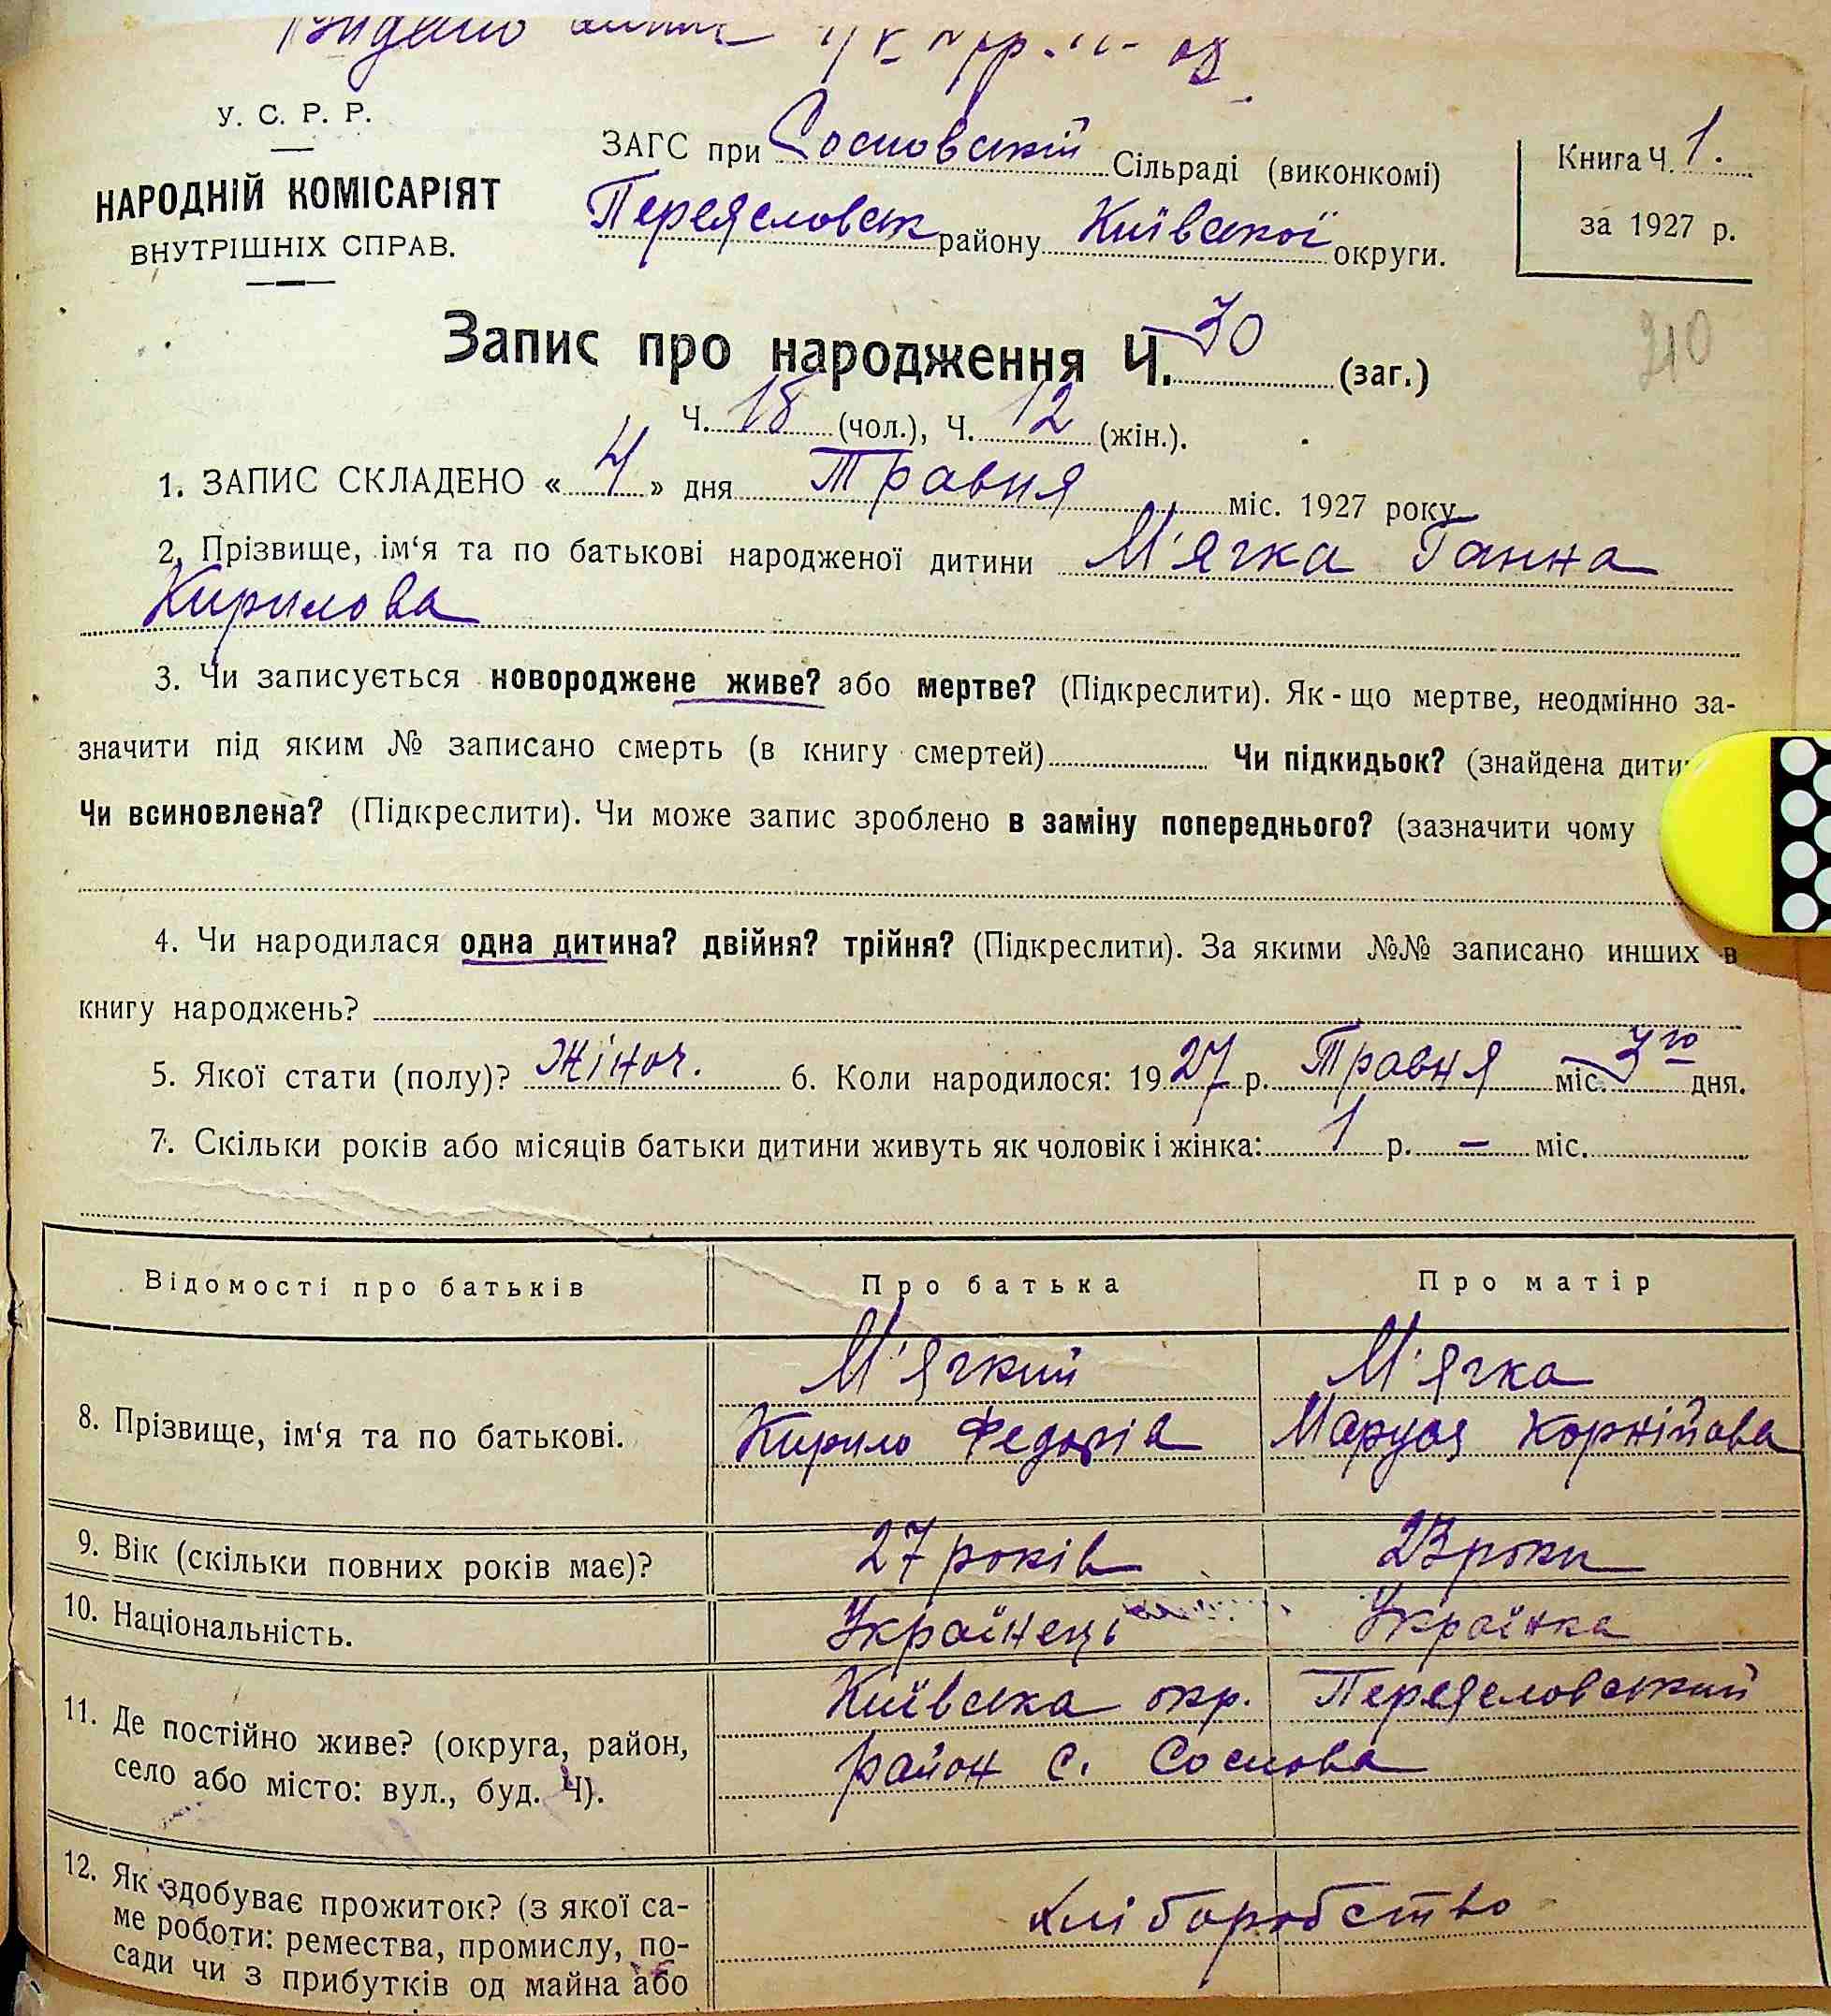 Видано
У. С. Р. Р.
НАРОДНІЙ КОМІСАРІЯТ
ВНУТРІШНІХ СПРАВ.
ЗАГС при Сосновській Сільраді (виконкомі)
Переяславськ району Київської округи.
Книга Ч. 1.
за 1927 р.
Запис про народження Ч. 30 (заг.)
210
Ч. 18 (чол.), Ч. 12 (жін.).
1. ЗАПИС СКЛАДЕНО « 4 » дня Травня міс. 1927 року
2. Прізвище, ім‘я та по батькові народженої дитини М'ягка Ганна
Кирилова
3. Чи записується новороджене живе? або мертве? (Підкреслити). Як-що мертве, неодмінно за-
значити під яким № записано смерть (в книгу смертей) Чи підкидьок? (знайдена дити
Чи всиновлена? (Підкреслити). Чи може запис зроблено в заміну попереднього? (зазначити чому
4. Чи народилася одна дитина? двійня? трійня? (Підкреслити). За якими №№ записано инших в
книгу народжень?
5. Якої стати (полу)? Жіноч. 6. Коли народилося: 1927 р. Травня міс. 3го дня.
7. Скільки років або місяців батьки дитини живуть як чоловік і жінка: 1 р. – міс.
Відомості про батьків Про батька Про матір
М'ягкий М'ягка
8. Прізвище, ім‘я та по батькові. Кирило Федорів Маруся Корнійова
9. Вік (скільки повних років має)? 27 років 23 роки
10. Національність. Українець Українка
Київська окр. Переяславський
11. Де постійно живе? (округа, район, район с. Соснова
село або місто: вул., буд. Ч).
12. Як здобуває прожиток? (з якої са- хліборобство
ме роботи: ремества, промислу, по-
сади чи з прибутків од майна або